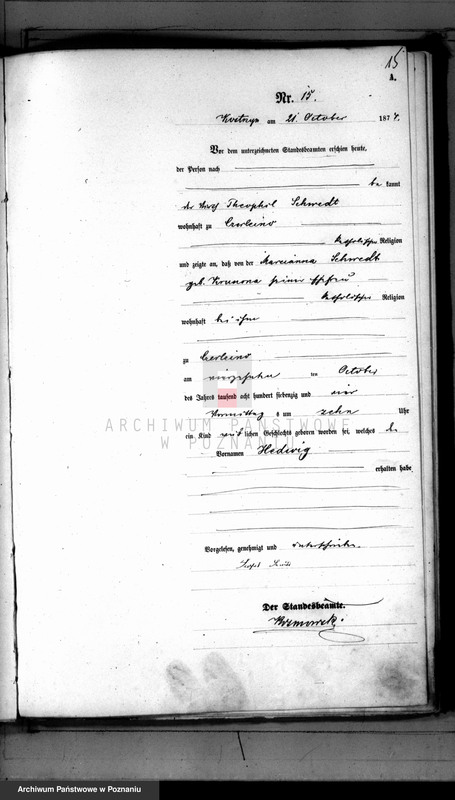 15
A.
Nr. 15.
am 21. October 1874.
Vor dem unterzeichneten Standesbeamten erschien heute,
der Person nach
be kannt
der Theophil Schwedt
wohnhaft zu Czerleino
katholischer Religion
und zeigte an, daß von der Marianna Schwedt
geb. seiner Ehefrau
katholischer Religion
wohnhaft bei ihm
zu Czerleino
am vierzehnten October
des Jahres tausend acht hundert siebenzig und vier
Vormittags um zehn Uhr
ein Kind weiblichen Geschlechts geboren worden sei, welches den
Vornamen Hedwig
erhalten habe
Vorgelesen, genehmigt und unterschrieben.
Der Standesbeamte.
ARCHIWUM PAŃSTWOWE
W POZNANIU
Archiwum Państwowe w Poznaniu